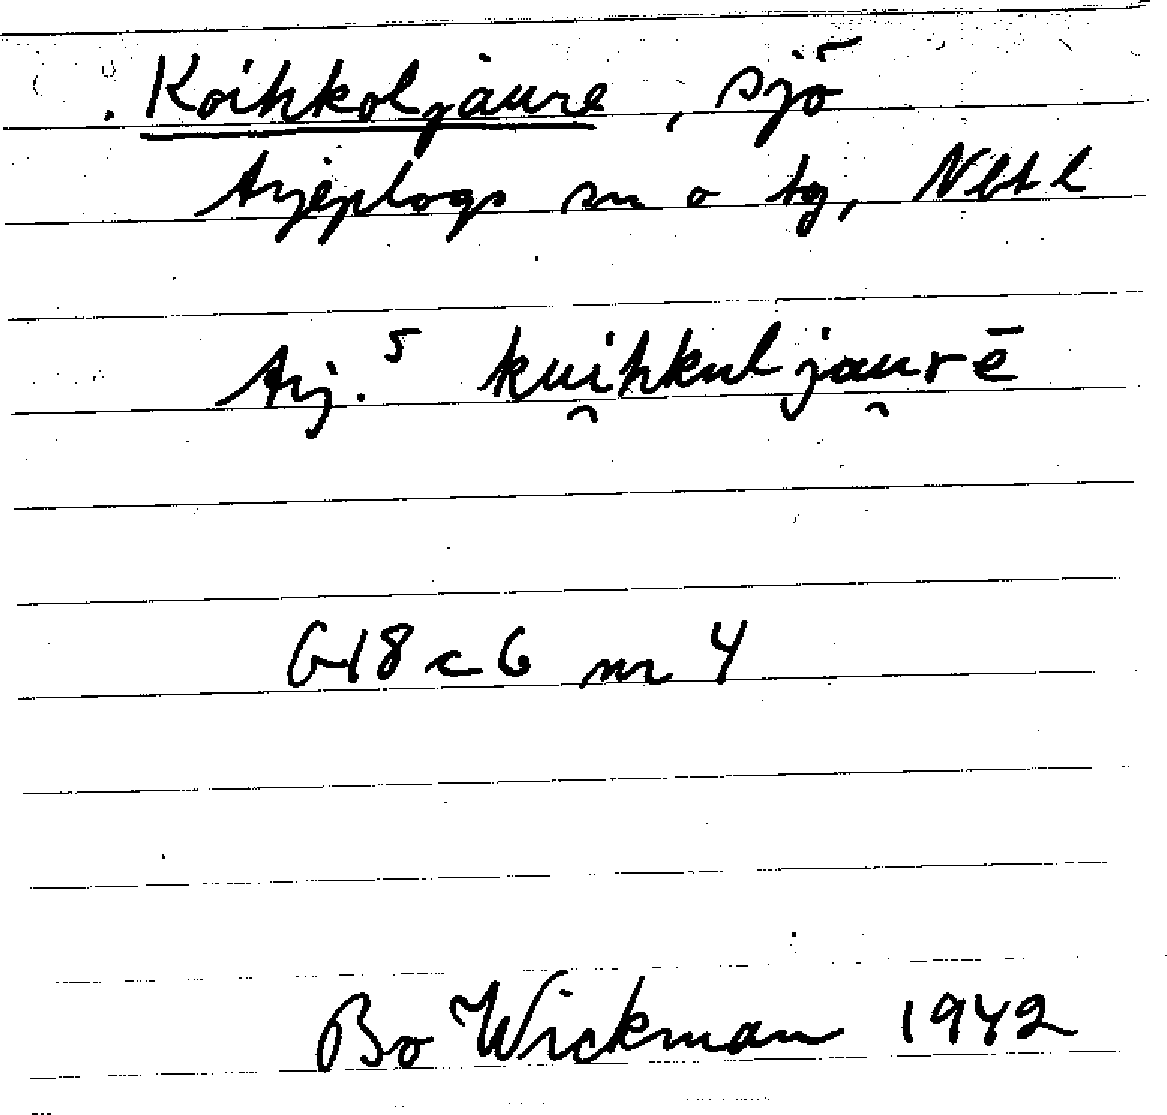 Koihkoljaure, sjö
Arjeplogs sn o tg, Nbt l
Arj.⁵ kui̯hkuljau̯rē
G18 c 6 nr 4
Bo Wickman 1942